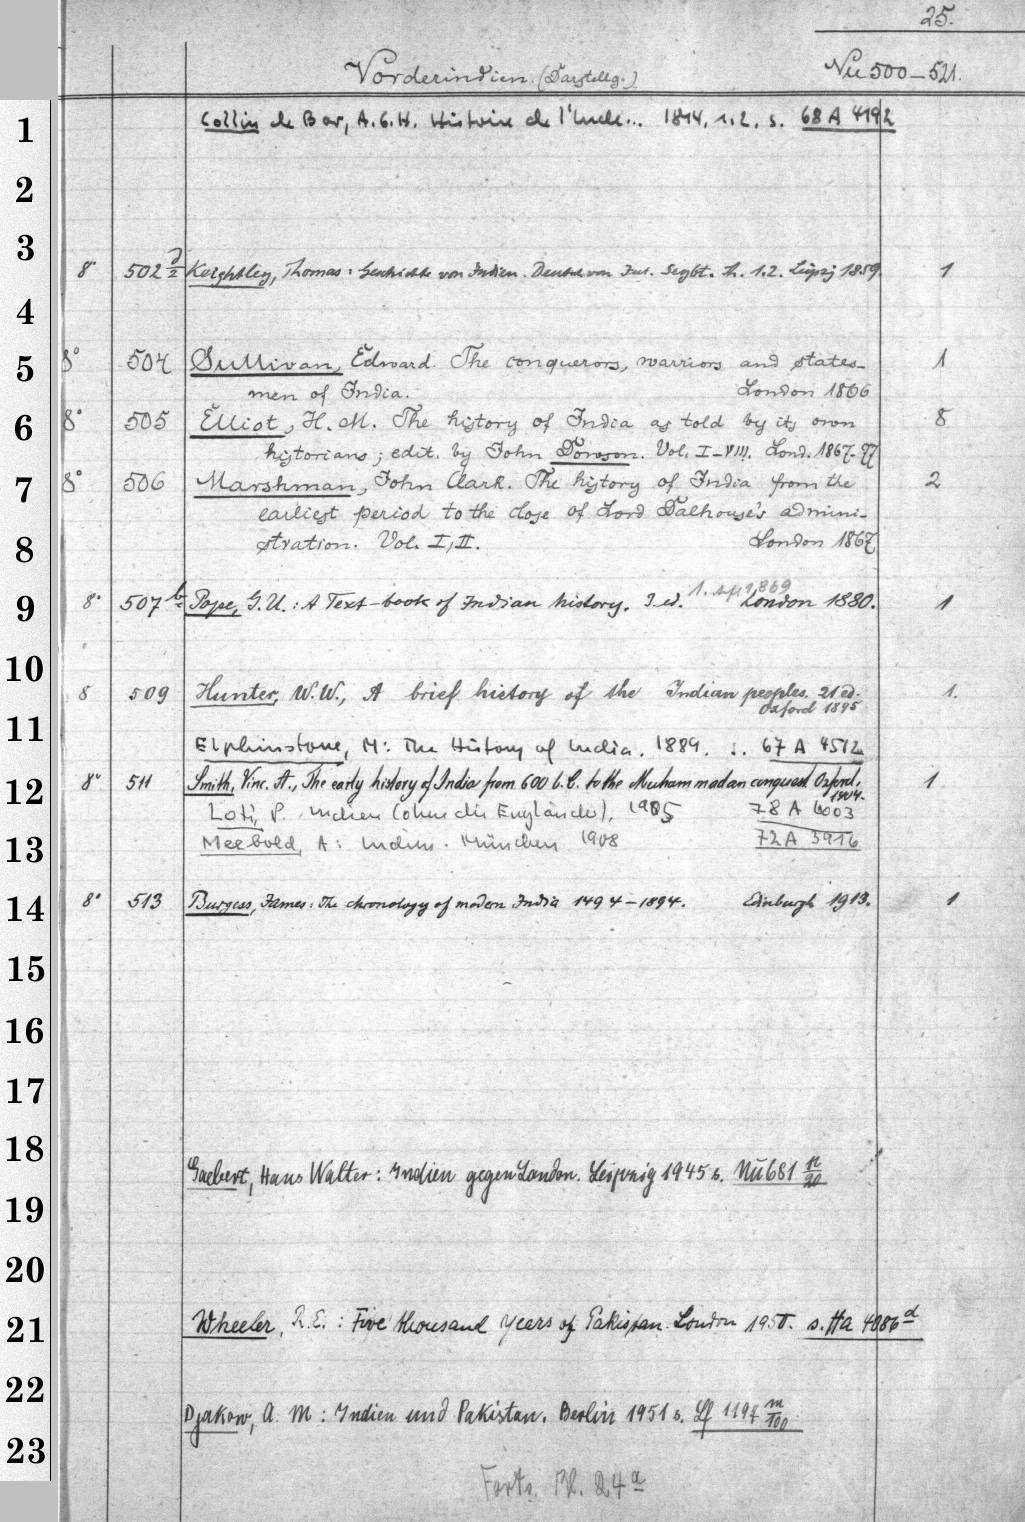 25.
Vorderindien. (Darstellg.) Nu 500–521.
1 Collin de Bar, A. G. H. Histoire de l'Inde... 1814. 1.2. s. 68 A 4192
2
3
8° 502 d/2 Keightley, Thomas: Geschichte von Indien. Deutsch von Jul. Seybt. Th. 1.2. Leipzig 1859. 1
4
5 8° 504 Sullivan, Edward. The conquerors, warriors and states-
men of India. London 1866 1
6 8° 505 Elliot, H. M. The history of India as told by its own 8
historians; edit. by John Dowson. Vol. I–VIII. Lond. 1867–77
7 8° 506 Marshman, John Clark. The history of India from the 2
earliest period to the close of Lord Dalhouse's admini-
8 stration. Vol. I, II. London 1867
1. 1869
9 8° 507 b Pope, G. U.: A Text-book of Indian history. 3 ed. London 1880. 1
10
8 509 Hunter, W. W., A brief history of the Indian peoples. 21 ed. 1.
Oxford 1895
11 Elphinstone, M: The History of India. 1889. s. 67 A 4512
12 8° 511 Smith, Vinc. A., The early history of India from 600 b. C. to the Muhammadan conquest Oxford, 1
1904.
Loti, P. Indien (ohne die Engländer). 1905 78 A 4003
13 Meebold, A: Indien. München 1908 72 A 3916
14 8° 513 Burgess, James: The chronology of modern India 1494–1894. Edinburgh 1913. 1
15
16
17
18
Gaebert, Hans Walter: Indien gegen London. Leipzig 1945 s. Nu 681 n/20
19
20
21 Wheeler, R. E.: Five thousand years of Pakistan. London 1950. s. Ha 4086 d
22
Djakow, A. M: Indien und Pakistan. Berlin 1951 s. 1197 m/100
23
Forts. Bl. 24 a